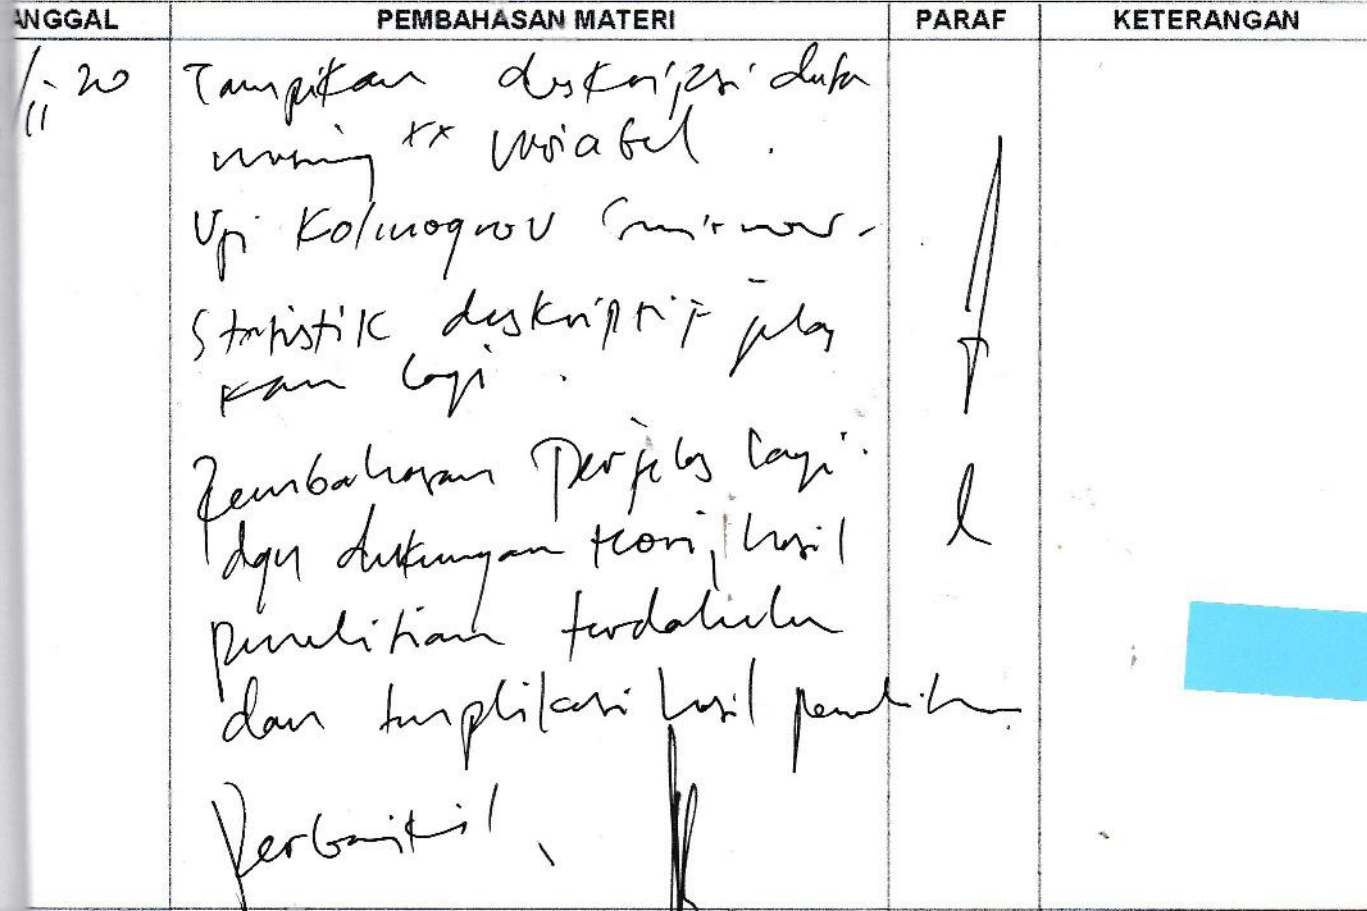 ANGGAL PEMBAHASAN MATERI PARAF KETERANGAN
20 Tampikan deskripsi data
masing ×× variabel .
Uji Kolmogrov Smirnov -
Statistik deskriptif jelas
kan lagi .
Pembahasan perjelas lagi .
dgn dukungan teori, hasil
penelitian terdahulu
dan implikasi hasil penelitian
Perbaiki !